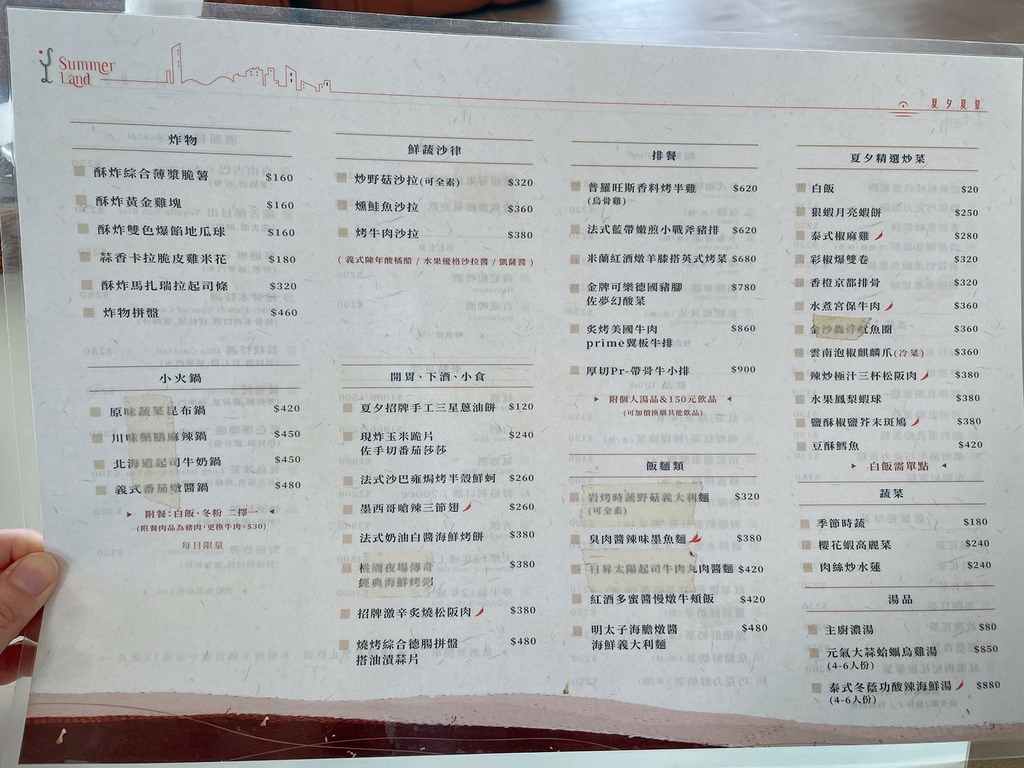 Summer
Land
夏夕夏景
炸物
酥炸綜合薄漿脆薯 $160
酥炸黃金雞塊 $160
酥炸雙色爆餡地瓜球 $160
蒜香卡拉脆皮雞米花 $180
酥炸馬扎瑞拉起司條 $320
炸物拼盤 $460
小火鍋
原味蔬菜昆布鍋 $420
川味藥膳麻辣鍋 $450
北海道起司牛奶鍋 $450
義式番茄燉醬鍋 $480
附餐:白飯、冬粉 二擇一
(附餐肉品為豬肉,更換牛肉+$30)
每日限量
鮮蔬沙律
炒野菇沙拉(可全素) $320
燻鮭魚沙拉 $360
烤牛肉沙拉 $380
(義式陳年酸橘醋 / 水果優格沙拉醬 / 凱薩醬)
開胃、下酒、小食
夏夕招牌手工三星蔥油餅 $120
現炸玉米脆片 $240
佐手切番茄莎莎
法式沙巴雍焗烤半殼鮮蚵 $260
墨西哥嗆辣三節翅 $260
法式奶油白醬海鮮烤餅 $380
桃園夜場傳奇 $380
經典海鮮烤粥
招牌激辛炙燒松阪肉 $380
燒烤綜合德腸拼盤 $480
搭油漬蒜片
排餐
普羅旺斯香料烤半雞 $620
(烏骨雞)
法式藍帶嫩煎小戰斧豬排 $620
米蘭紅酒燉羊膝搭英式烤菜 $680
金牌可樂德國豬腳 $780
佐夢幻酸菜
炙烤美國牛肉 $860
prime翼板牛排
厚切Pr-帶骨牛小排 $900
附個人湯品&150元飲品
(可加價換購其他飲品)
飯麵類
岩烤時蔬野菇義大利麵 $320
(可全素)
臭肉醬辣味墨魚麵 $380
日昇太陽起司牛肉丸肉醬麵 $420
紅酒多蜜醬慢燉牛頰飯 $420
明太子海膽燉醬 $480
海鮮義大利麵
夏夕精選炒菜
白飯 $20
狠蝦月亮蝦餅 $250
泰式椒麻雞 $280
彩椒爆雙卷 $320
香橙京都排骨 $320
水煮宮保牛肉 $360
金沙魚圈 $360
雲南泡椒麒麟爪(冷菜) $360
辣炒極汁三杯松阪肉 $380
水果鳳梨蝦球 $380
鹽酥椒鹽芥末斑鳩 $380
豆酥鱈魚 $420
白飯需單點
蔬菜
季節時蔬 $180
櫻花蝦高麗菜 $240
肉絲炒水蓮 $240
湯品
主廚濃湯 $80
元氣大蒜蛤蠣烏雞湯 $850
(4-6人份)
泰式冬蔭功酸辣海鮮湯 $880
(4-6人份)